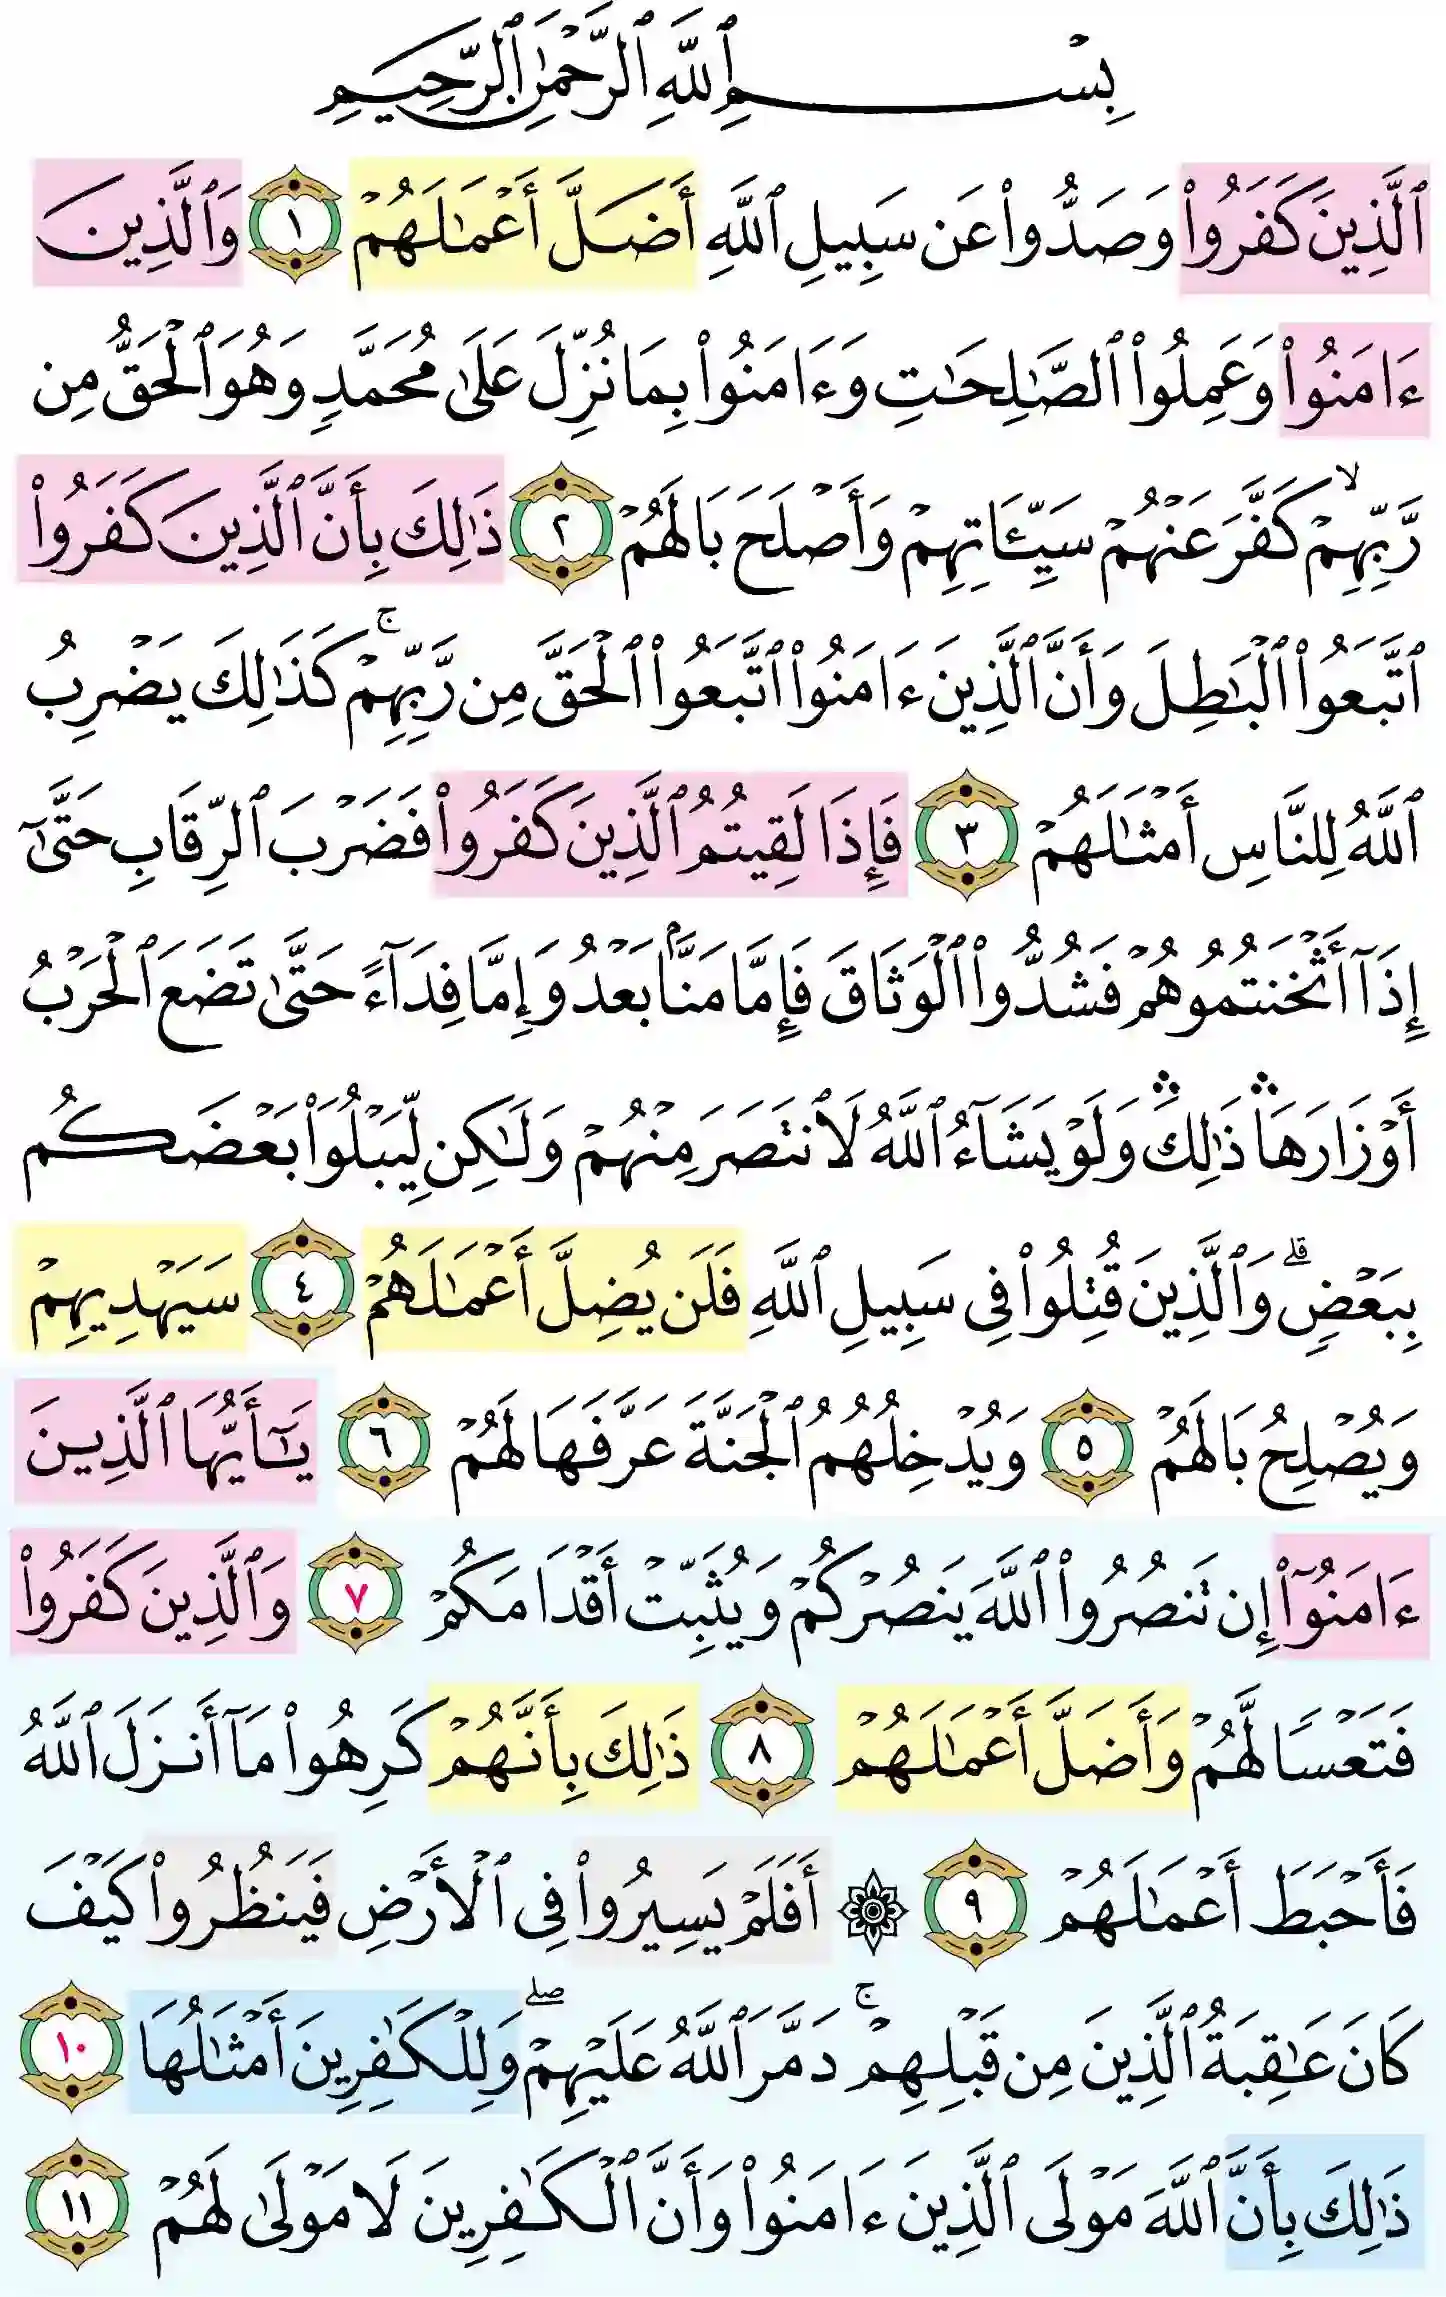 بِسْمِ ٱللَّهِ ٱلرَّحْمَٰنِ ٱلرَّحِيمِ
ٱلَّذِينَ كَفَرُوا۟ وَصَدُّوا۟ عَن سَبِيلِ ٱللَّهِ أَضَلَّ أَعْمَٰلَهُمْ ١ وَٱلَّذِينَ
ءَامَنُوا۟ وَعَمِلُوا۟ ٱلصَّٰلِحَٰتِ وَءَامَنُوا۟ بِمَا نُزِّلَ عَلَىٰ مُحَمَّدٍ وَهُوَ ٱلْحَقُّ مِن
رَّبِّهِمْ ۙ كَفَّرَ عَنْهُمْ سَيِّـَٔاتِهِمْ وَأَصْلَحَ بَالَهُمْ ٢ ذَٰلِكَ بِأَنَّ ٱلَّذِينَ كَفَرُوا۟
ٱتَّبَعُوا۟ ٱلْبَٰطِلَ وَأَنَّ ٱلَّذِينَ ءَامَنُوا۟ ٱتَّبَعُوا۟ ٱلْحَقَّ مِن رَّبِّهِمْ ۚ كَذَٰلِكَ يَضْرِبُ
ٱللَّهُ لِلنَّاسِ أَمْثَٰلَهُمْ ٣ فَإِذَا لَقِيتُمُ ٱلَّذِينَ كَفَرُوا۟ فَضَرْبَ ٱلرِّقَابِ حَتَّىٰٓ
إِذَآ أَثْخَنتُمُوهُمْ فَشُدُّوا۟ ٱلْوَثَاقَ فَإِمَّا مَنًّۢا بَعْدُ وَإِمَّا فِدَآءً حَتَّىٰ تَضَعَ ٱلْحَرْبُ
أَوْزَارَهَا ۛ ذَٰلِكَ ۛ وَلَوْ يَشَآءُ ٱللَّهُ لَٱنتَصَرَ مِنْهُمْ وَلَٰكِن لِّيَبْلُوَا۟ بَعْضَكُم
بِبَعْضٍ ۗ وَٱلَّذِينَ قُتِلُوا۟ فِى سَبِيلِ ٱللَّهِ فَلَن يُضِلَّ أَعْمَٰلَهُمْ ٤ سَيَهْدِيهِمْ
وَيُصْلِحُ بَالَهُمْ ٥ وَيُدْخِلُهُمُ ٱلْجَنَّةَ عَرَّفَهَا لَهُمْ ٦ يَٰٓأَيُّهَا ٱلَّذِينَ
ءَامَنُوٓا۟ إِن تَنصُرُوا۟ ٱللَّهَ يَنصُرْكُمْ وَيُثَبِّتْ أَقْدَامَكُمْ ٧ وَٱلَّذِينَ كَفَرُوا۟
فَتَعْسًا لَّهُمْ وَأَضَلَّ أَعْمَٰلَهُمْ ٨ ذَٰلِكَ بِأَنَّهُمْ كَرِهُوا۟ مَآ أَنزَلَ ٱللَّهُ
فَأَحْبَطَ أَعْمَٰلَهُمْ ٩ ۞ أَفَلَمْ يَسِيرُوا۟ فِى ٱلْأَرْضِ فَيَنظُرُوا۟ كَيْفَ
كَانَ عَٰقِبَةُ ٱلَّذِينَ مِن قَبْلِهِمْ ۚ دَمَّرَ ٱللَّهُ عَلَيْهِمْ ۖ وَلِلْكَٰفِرِينَ أَمْثَٰلُهَا ١٠
ذَٰلِكَ بِأَنَّ ٱللَّهَ مَوْلَى ٱلَّذِينَ ءَامَنُوا۟ وَأَنَّ ٱلْكَٰفِرِينَ لَا مَوْلَىٰ لَهُمْ ١١